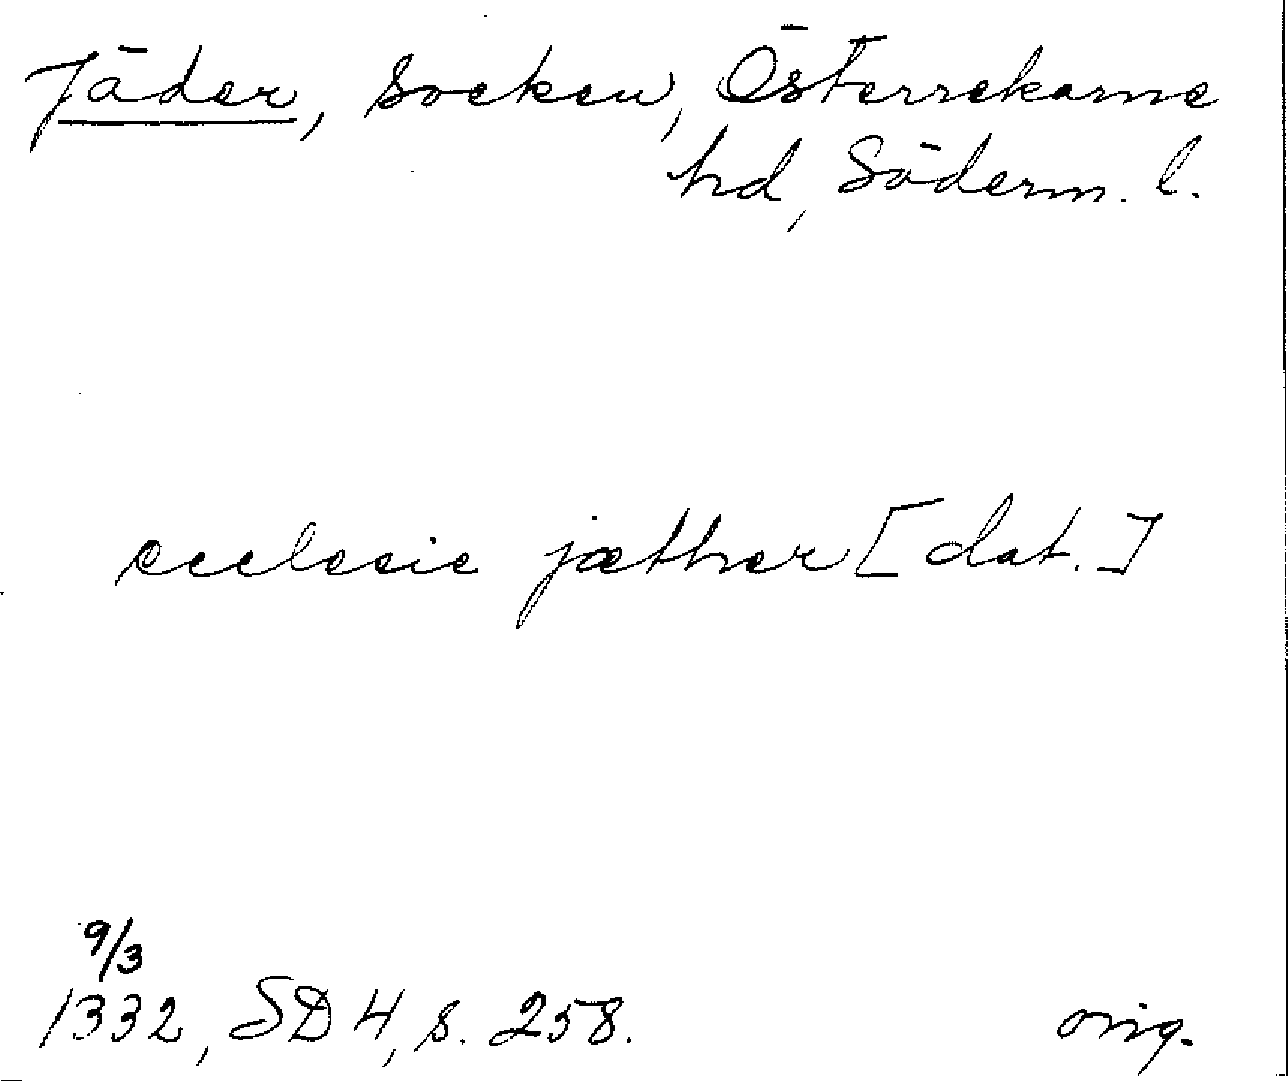 Jäder, socken, Österrekarne
hd, Söderm. l.
ecclesie jæther [dat.]
9/3
1332, SD 4, s. 258.
orig.